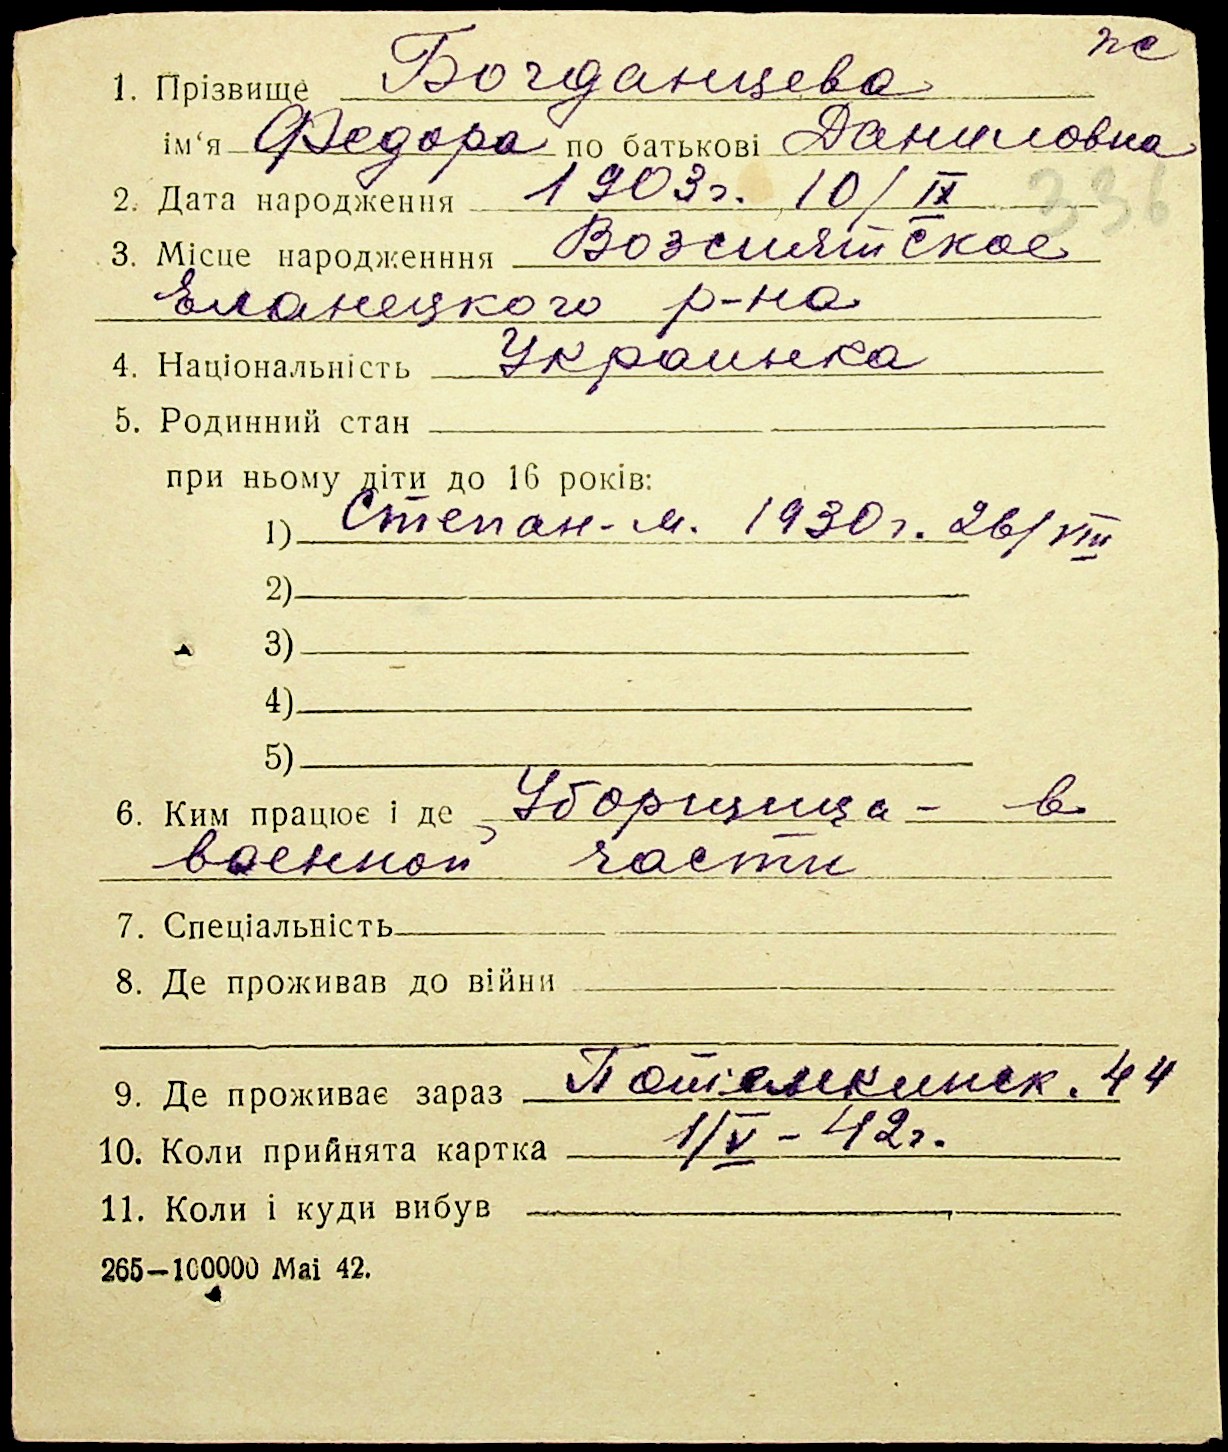 пс
1. Прізвище Богданцева
ім‘я Федора по батькові Даниловна
2. Дата народження 1903г. 10/IX 336
3. Місце народженння Возсиятское
Еланецкого р-на
4. Національність Украинка
5. Родинний стан
при ньому діти до 16 років:
1) Степан-м. 1930г. 26/VIII
2)
3)
4)
5)
6. Ким працює і де Уборщица - в
военной части
7. Спеціальність
8. Де проживав до війни
9. Де проживає зараз Потемкинск. 44
10. Коли прийнята картка 1/V-42г.
11. Коли і куди вибув
265—100000 Mai 42.